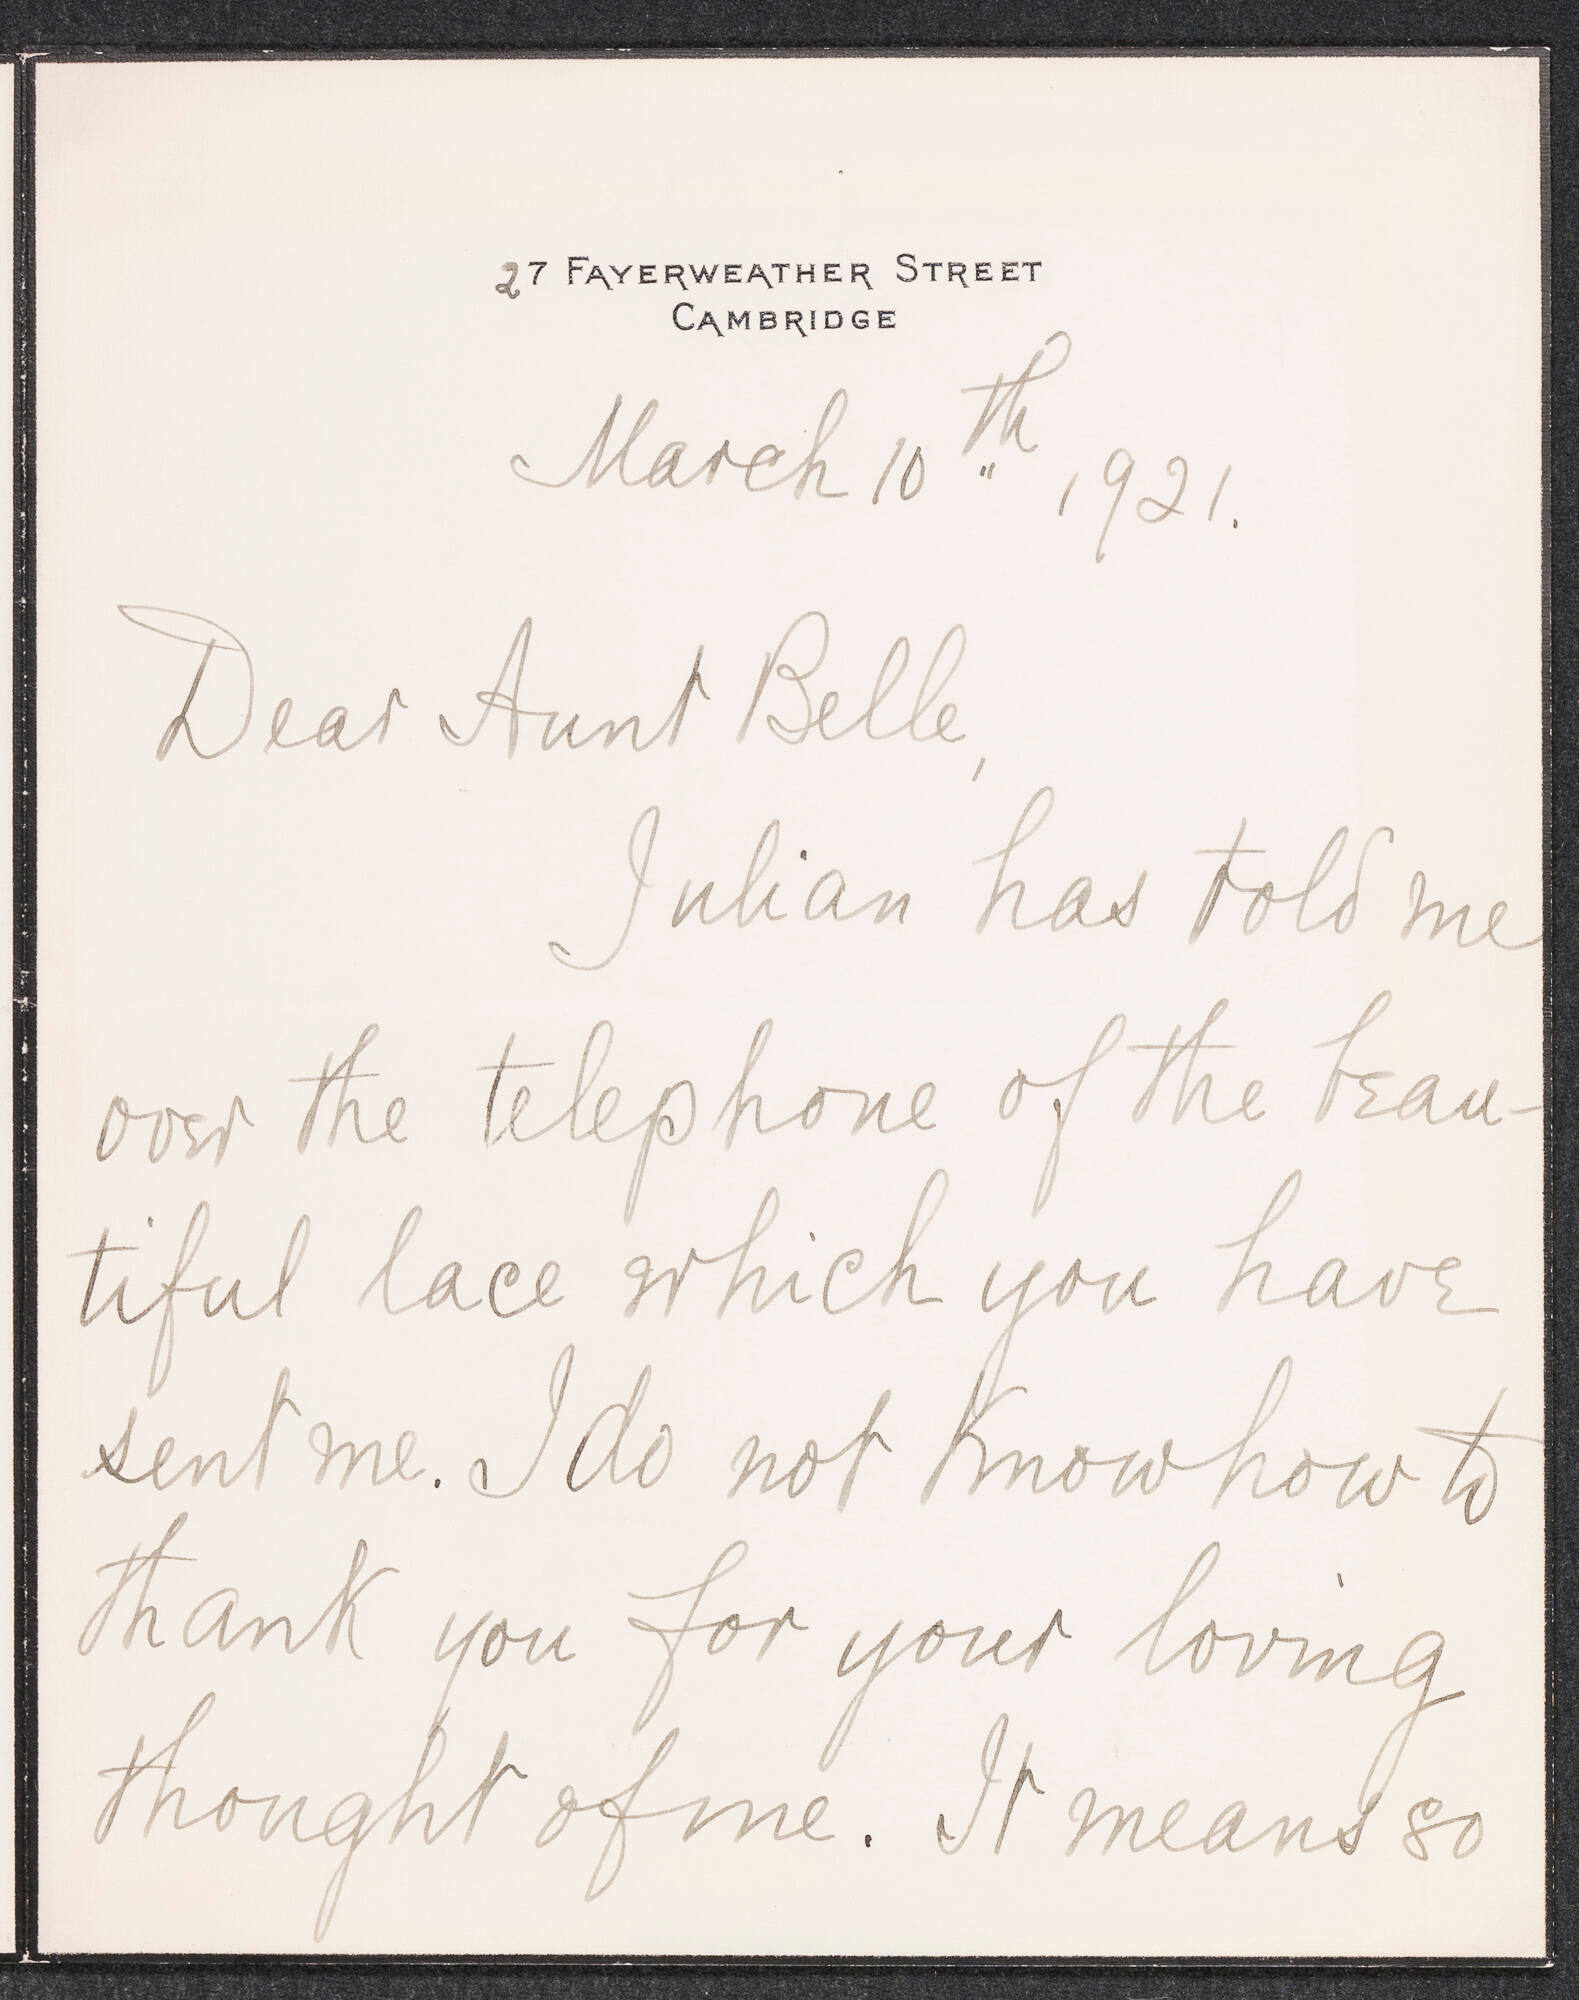 27 FAYERWEATHER STREET
CAMBRIDGE
March 10th, 1921.
Dear Aunt Belle,
Julian has told me
over the telephone of the beau-
tiful lace which you have
sent me. I do not know how to
thank you for your loving
thought of me. It means so